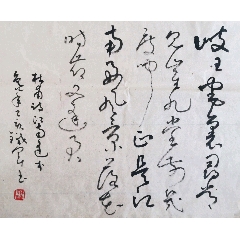 岐王宅里寻常
见崔九堂前几
度闻正是江
南好风景落花
时节又逢君
杜甫诗江南逢李
龟年